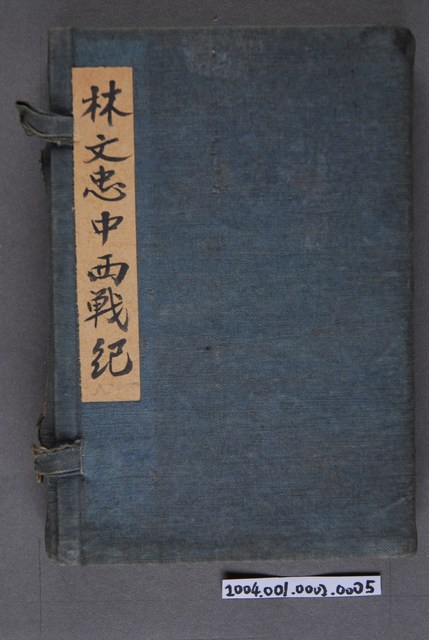 林文忠中西戦紀
2004.001.0003.0005